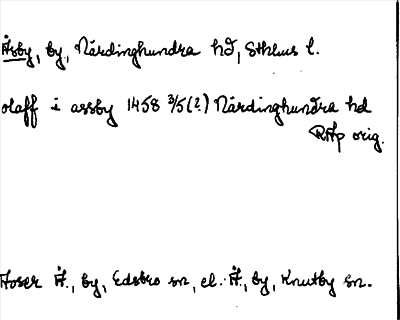 Åsby, by, Närdinghundra hd, Sthlms l.
olaff i assby 1458 3/5 (?) Närdinghundra hd
RAp orig.
Avser Å., by, Edsbro sn, el. Å., by, Knutby sn.